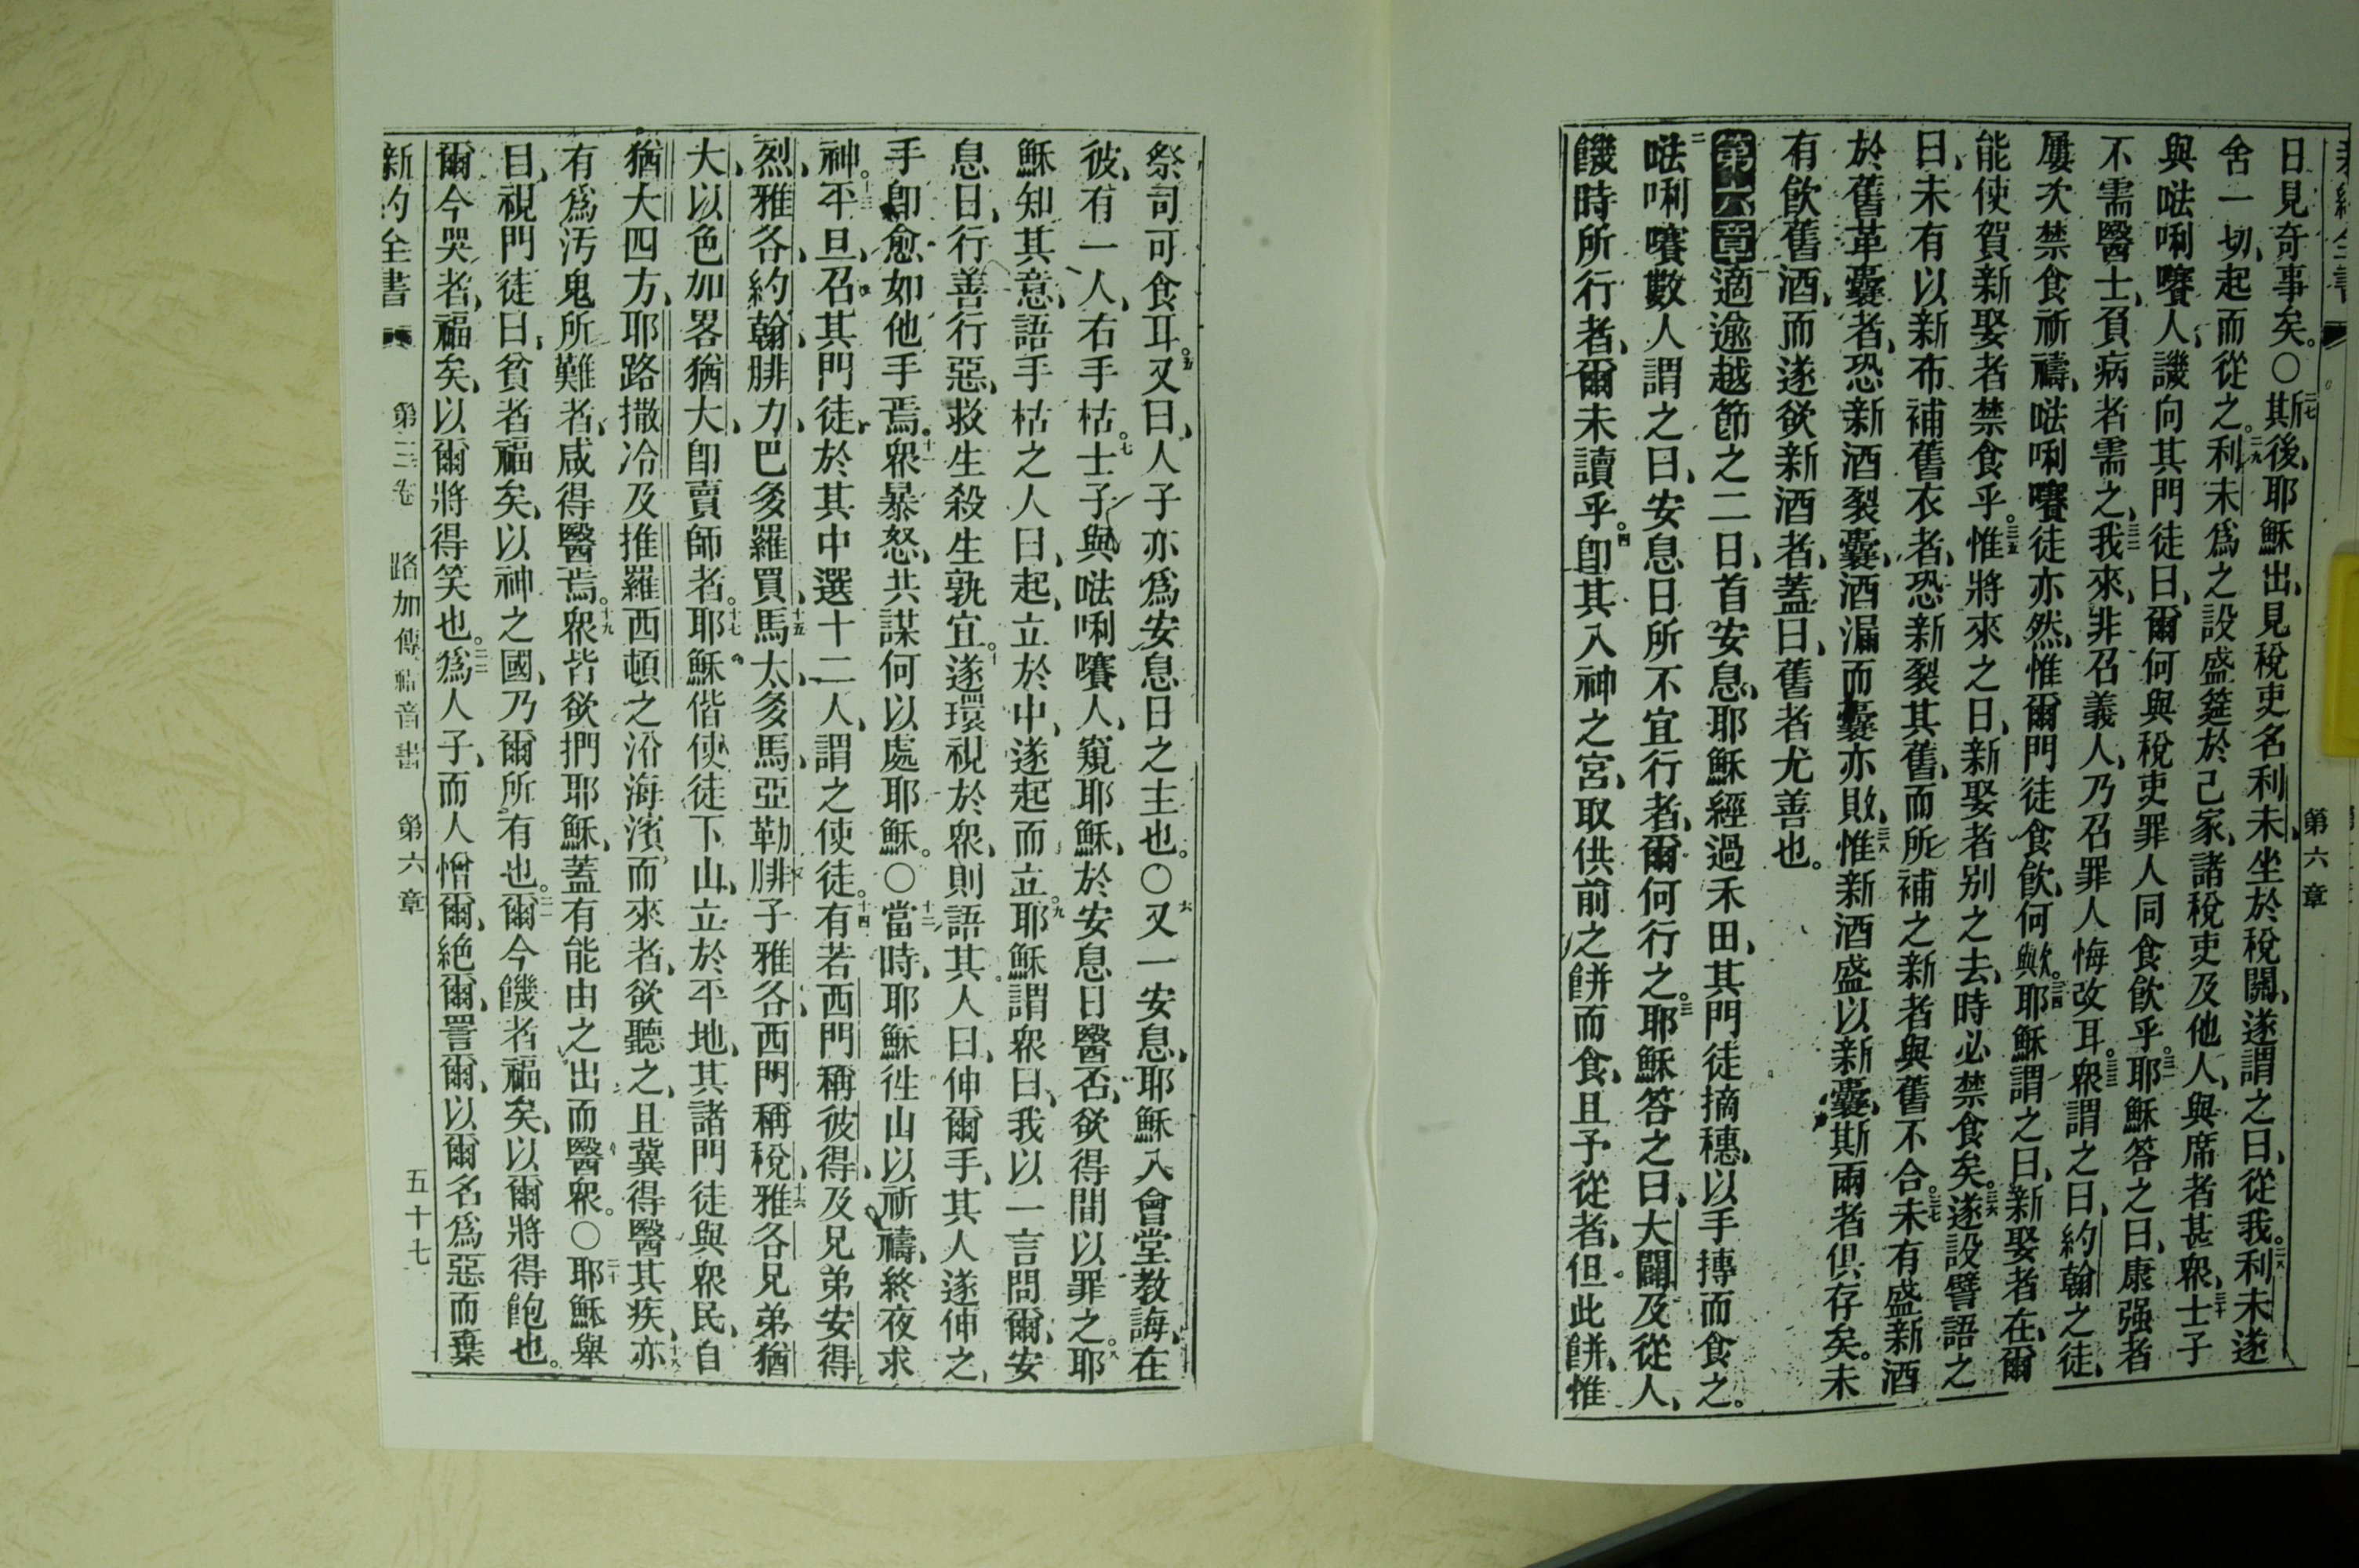 第六章
日見奇事矣。○二七斯後、耶穌出、見稅吏名利未、坐於稅關、遂謂之曰、從我。二八利未遂
舍一切、起而從之。二九利未爲之設盛筵於己家、諸稅吏及他人、與席者甚衆、三十士子
與㗫唎㘔人、譏向其門徒曰、爾何與稅吏罪人同食飲乎。三一耶穌答之曰、康强者
不需醫士、負病者需之、三二我來、非召義人、乃召罪人悔改耳。三三衆謂之曰、約翰之徒、
屢次禁食祈禱、㗫唎㘔徒亦然、惟爾門徒食飲、何歟。三四耶穌謂之曰、新娶者在、爾
能使賀新娶者禁食乎。三五惟將來之日、新娶者別之去、時必禁食矣。三六遂設譬語之
曰、未有以新布補舊衣者、恐新裂其舊、而所補之新者與舊不合。三七未有盛新酒
於舊革囊者、恐新酒裂囊、酒漏而囊亦敗、三八惟新酒盛以新囊、斯兩者俱存矣。未
有飲舊酒、而遂欲新酒者、蓋曰、舊者尤善也。
第六章適逾越節之二日、首安息、耶穌經過禾田、其門徒摘穗、以手摶而食之。
二㗫唎㘔數人謂之曰、安息日所不宜行者、爾何行之。三耶穌答之曰、大闢及從人、
饑時所行者、爾未讀乎。四卽其入神之宮、取供前之餅而食、且予從者、但此餅、惟
祭司可食耳。五又曰、人子亦爲安息日之主也。○六又一安息、耶穌入會堂教誨、在
彼、有一人、右手枯。七士子與㗫唎㘔人、窺耶穌、於安息日醫否、欲得間以罪之。八耶
穌知其意、語手枯之人曰、起、立於中、遂起而立。九耶穌謂衆曰、我以一言問爾、安
息日、行善行惡、救生殺生孰宜。十遂環視於衆、則語其人曰、伸爾手、其人遂伸之、
手卽愈如他手焉。十一衆暴怒、共謀何以處耶穌。○十二當時、耶穌徃山以祈禱、終夜求
神。十三平旦、召其門徒、於其中選十二人、謂之使徒。十四有若西門稱彼得、及兄弟安得
烈、雅各、約翰、腓力、巴多羅買、十五馬太、多馬、亞勒腓子雅各、西門稱稅、十六雅各兄弟猶
大、以色加畧猶大、卽賣師者。十七耶穌偕使徒下山、立於平地、其諸門徒與衆民、自
猶大四方、耶路撒冷、及推羅西頓之沿海濱而來者、欲聽之、且冀得醫其疾、十八亦
有爲汚鬼所難者、咸得醫焉。十九衆皆欲捫耶穌、蓋有能由之出而醫衆。○二十耶穌舉
目、視門徒曰、貧者福矣、以神之國、乃爾所有也。二一爾今饑者福矣、以爾將得飽也。
爾今哭者、福矣、以爾將得笑也。二二爲人子、而人憎爾、絕爾、詈爾、以爾名爲惡而棄
新約全書 第三卷 路加傳福音書 第六章 五十七